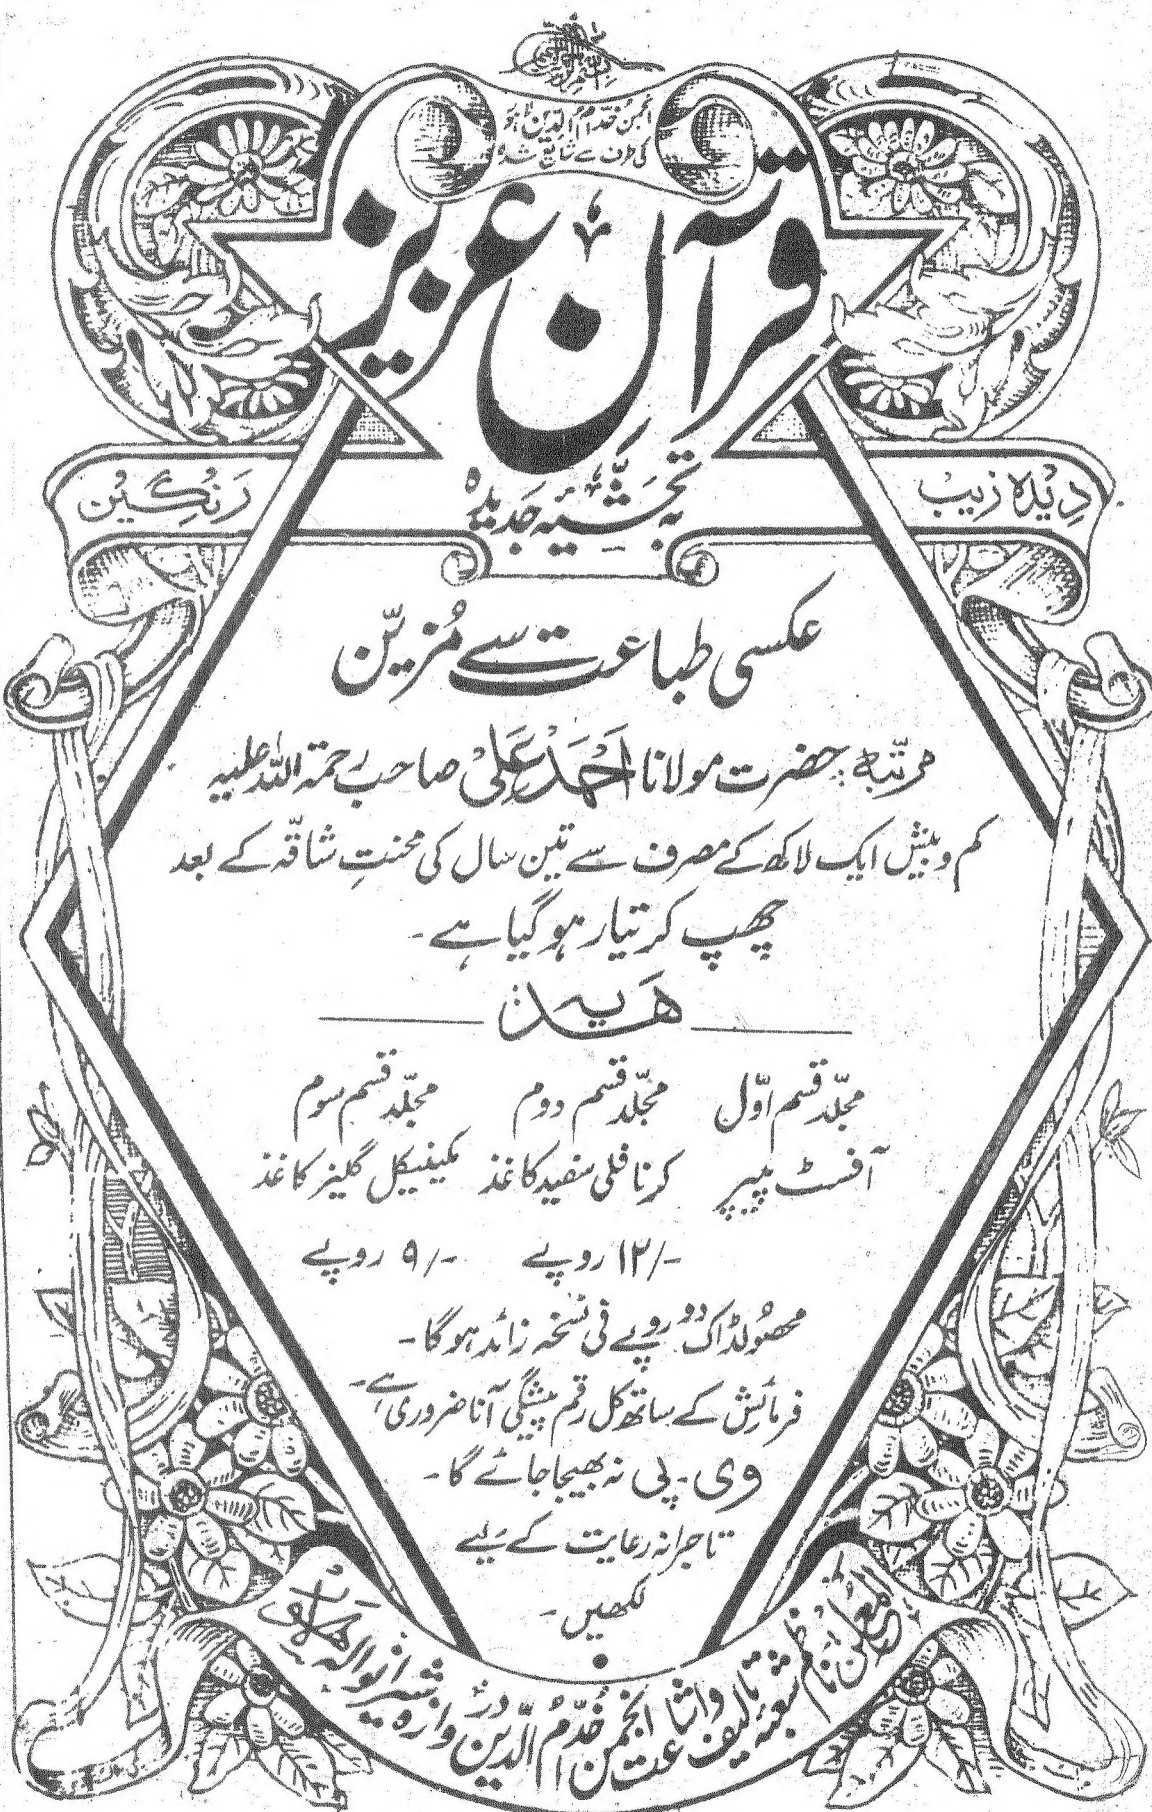 بسم اللہ الرحمن الرحیم
انجمن خدام الدین لاہور
کی طرف سے شائع شدہ
قرآن عزیز
دیدہ زیب
بہ تحشیۂ جدیدہ
رنگین
عکسی طباعت سے مُزیّن
مرتبہ: حضرت مولانا اَحْمَد عَلِیْ صاحب رحمۃ اللہ علیہ
کم و بیش ایک لاکھ کے مصرف سے تین سال کی محنتِ شاقّہ کے بعد
چھپ کر تیار ہو گیا ہے۔
ھَدیہ
مجلّد قسم اوّل مجلّد قسم دوم مجلّد قسم سوم
آفسٹ پیپر کرنافلی سفید کاغذ مکینیکل گلیز کاغذ
۱۲/- روپے ۹/- روپے
محصُولڈاک دو روپے فی نسخہ زائد ہو گا۔
فرمائش کے ساتھ کل رقم پیشگی آنا ضروری ہے۔
وی۔ پی نہ بھیجا جائے گا۔
تاجرانہ رعایت کے لیے
لکھیں۔
المعلن ناظم شعبہ تالیف و اشاعت انجمن خُدّامُ الدّین دروازہ شیرانوالہ لاہور